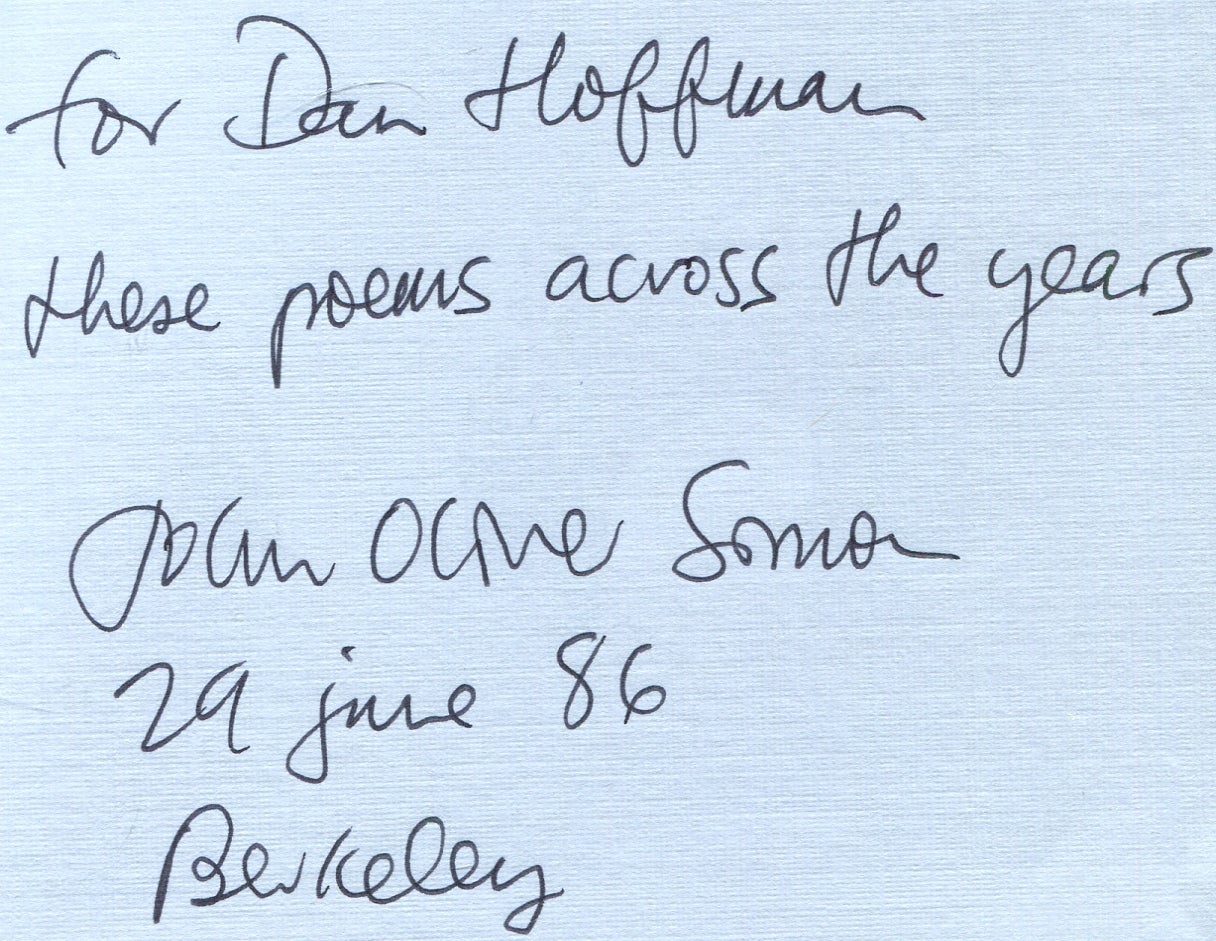 for Dan Hoffman
these poems across the years
John Oliver Simon
29 june 86
Berkeley